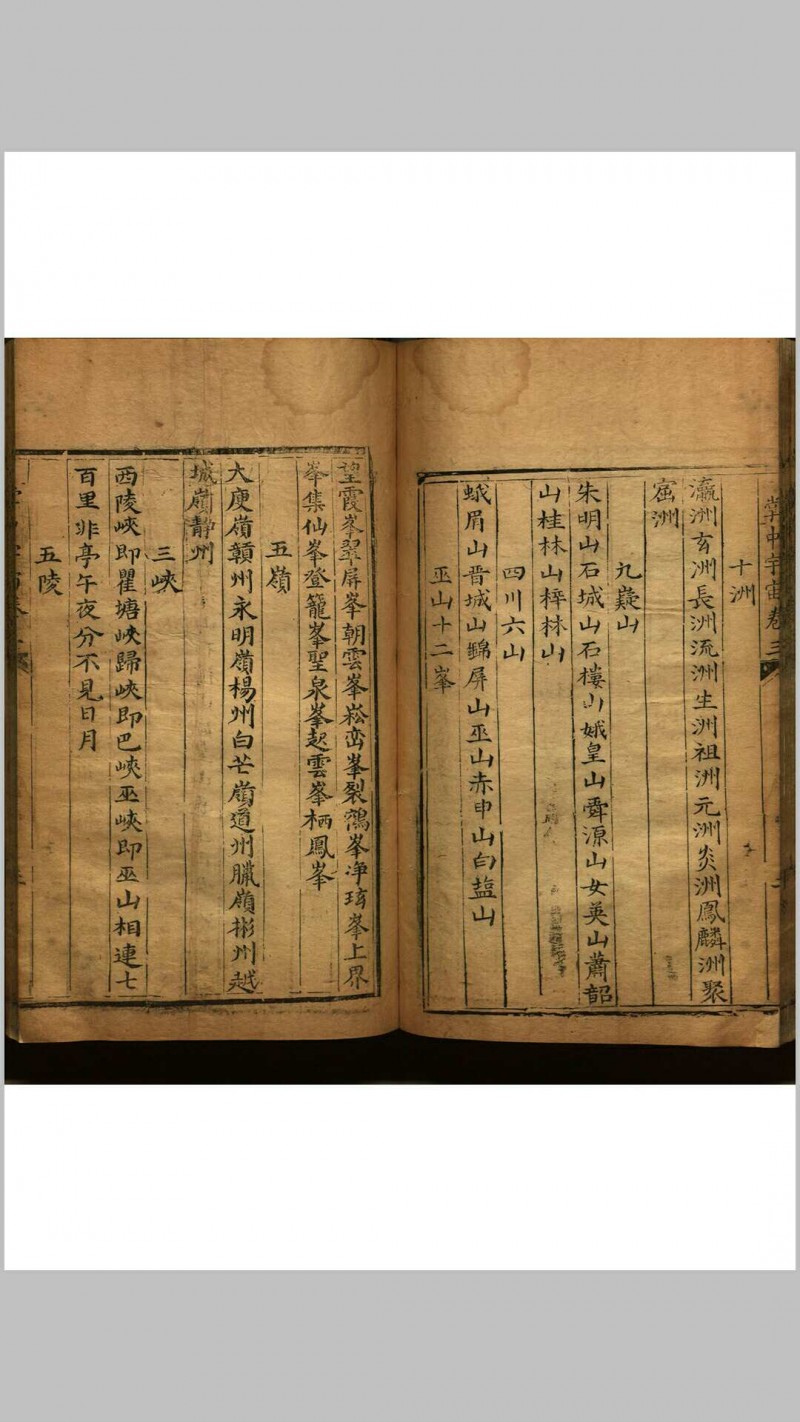 掌中宇宙卷三
十洲
瀛洲玄洲長洲流洲生洲祖洲元洲炎洲鳳麟洲聚
窟洲
九嶷山
朱明山石城山石樓山娥皇山舜源山女英山蕭韶
山桂林山梓林山
四川六山
蛾眉山晋城山錦屏山巫山赤申山白盐山
巫山十二峯
望霞峯翠屏峯朝雲峯崧峦峯裂鶴峯净琦峯上界
峯集仙峯登籠峯聖泉峯起雲峯栖鳳峯
五嶺
大庾嶺贑州永明嶺楊州白芒嶺道州臘嶺彬州越
城嶺静州
三峽
西陵峽即瞿塘峽歸峽即巴峽巫峽即巫山相連七
百里非亭午夜分不見日月
五陵